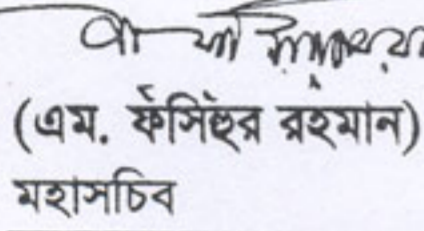 (এম. ফসিহুর রহমান)
মহাসচিব